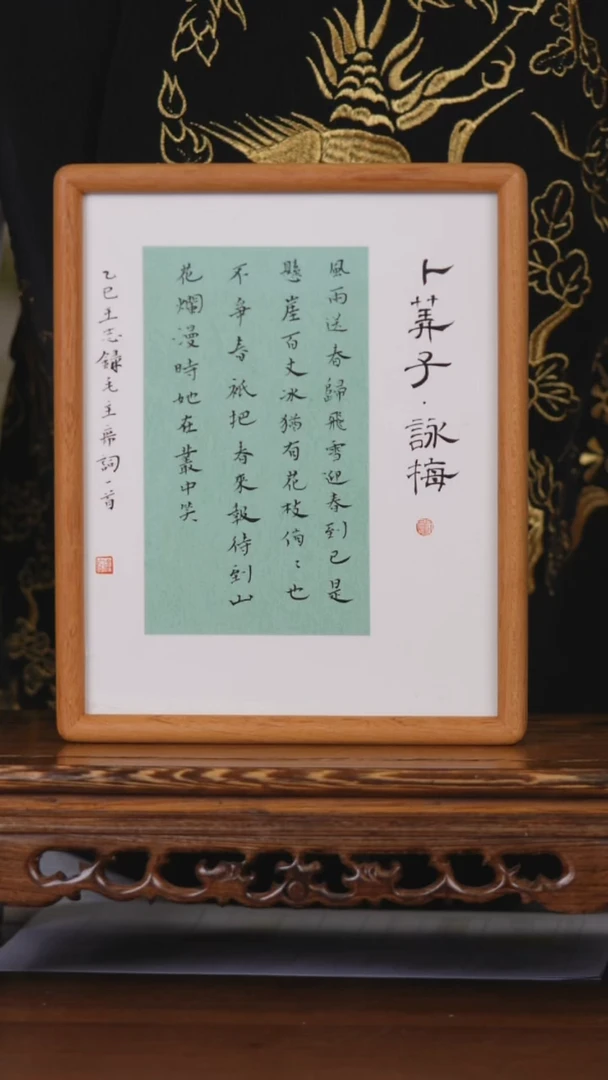 卜筭子·詠梅
風雨送春歸飛雪迎春到已是
懸崖百丈冰猶有花枝俏〻也
不爭春祇把春來報待到山
花爛漫時她在叢中笑
乙巳王志錄毛主席詞一首